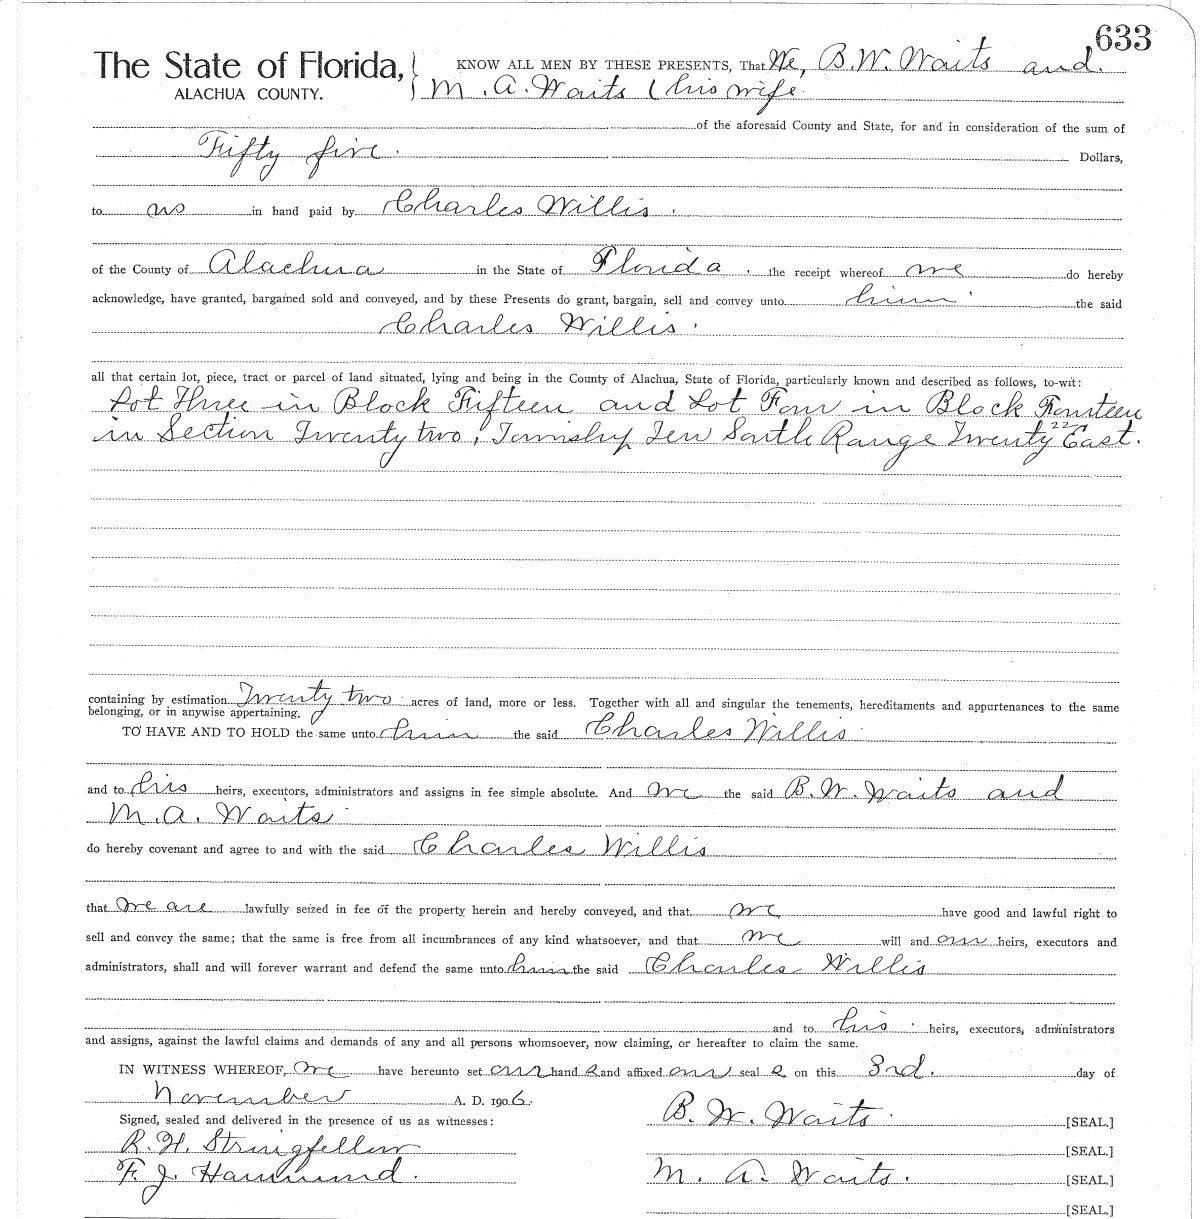 633
The State of Florida, KNOW ALL MEN BY THESE PRESENTS, That We, B.W. Waits and
ALACHUA COUNTY. M. A. Waits (his wife
of the aforesaid County and State, for and in consideration of the sum of
Fifty five Dollars,
to us in hand paid by Charles Willis.
of the County of Alachua in the State of Florida, the receipt whereof we do hereby
acknowledge, have granted, bargained sold and conveyed, and by these Presents do grant, bargain, sell and convey unto him the said
Charles Willis.
all that certain lot, piece, tract or parcel of land situated, lying and being in the County of Alachua, State of Florida, particularly known and described as follows, to-wit:
Lot Three in Block Fifteen and Lot Four in Block Fourteen
in Section Twenty two, Township Ten South Range Twenty 22 East.
containing by estimation Twenty two acres of land, more or less. Together with all and singular the tenements, hereditaments and appurtenances to the same
belonging, or in anywise appertaining.
TO HAVE AND TO HOLD the same unto him the said Charles Willis
and to his heirs, executors, administrators and assigns in fee simple absolute. And we the said B. W. Waits and
M. A. Waits
do hereby covenant and agree to and with the said Charles Willis
that we are lawfully seized in fee of the property herein and hereby conveyed, and that we have good and lawful right to
sell and convey the same; that the same is free from all incumbrances of any kind whatsoever, and that we will and our heirs, executors and
administrators, shall and will forever warrant and defend the same unto him the said Charles Willis
and to his heirs, executors, administrators
and assigns, against the lawful claims and demands of any and all persons whomsoever, now claiming, or hereafter to claim the same.
IN WITNESS WHEREOF, we have hereunto set our hand s and affixed our seal s on this 3rd. day of
November A. D. 1906.
Signed, sealed and delivered in the presence of us as witnesses: B. W. Waits [SEAL.]
R. H. Stringfellow [SEAL.]
F. J. Hammond. M. A. Waits. [SEAL.]
[SEAL.]